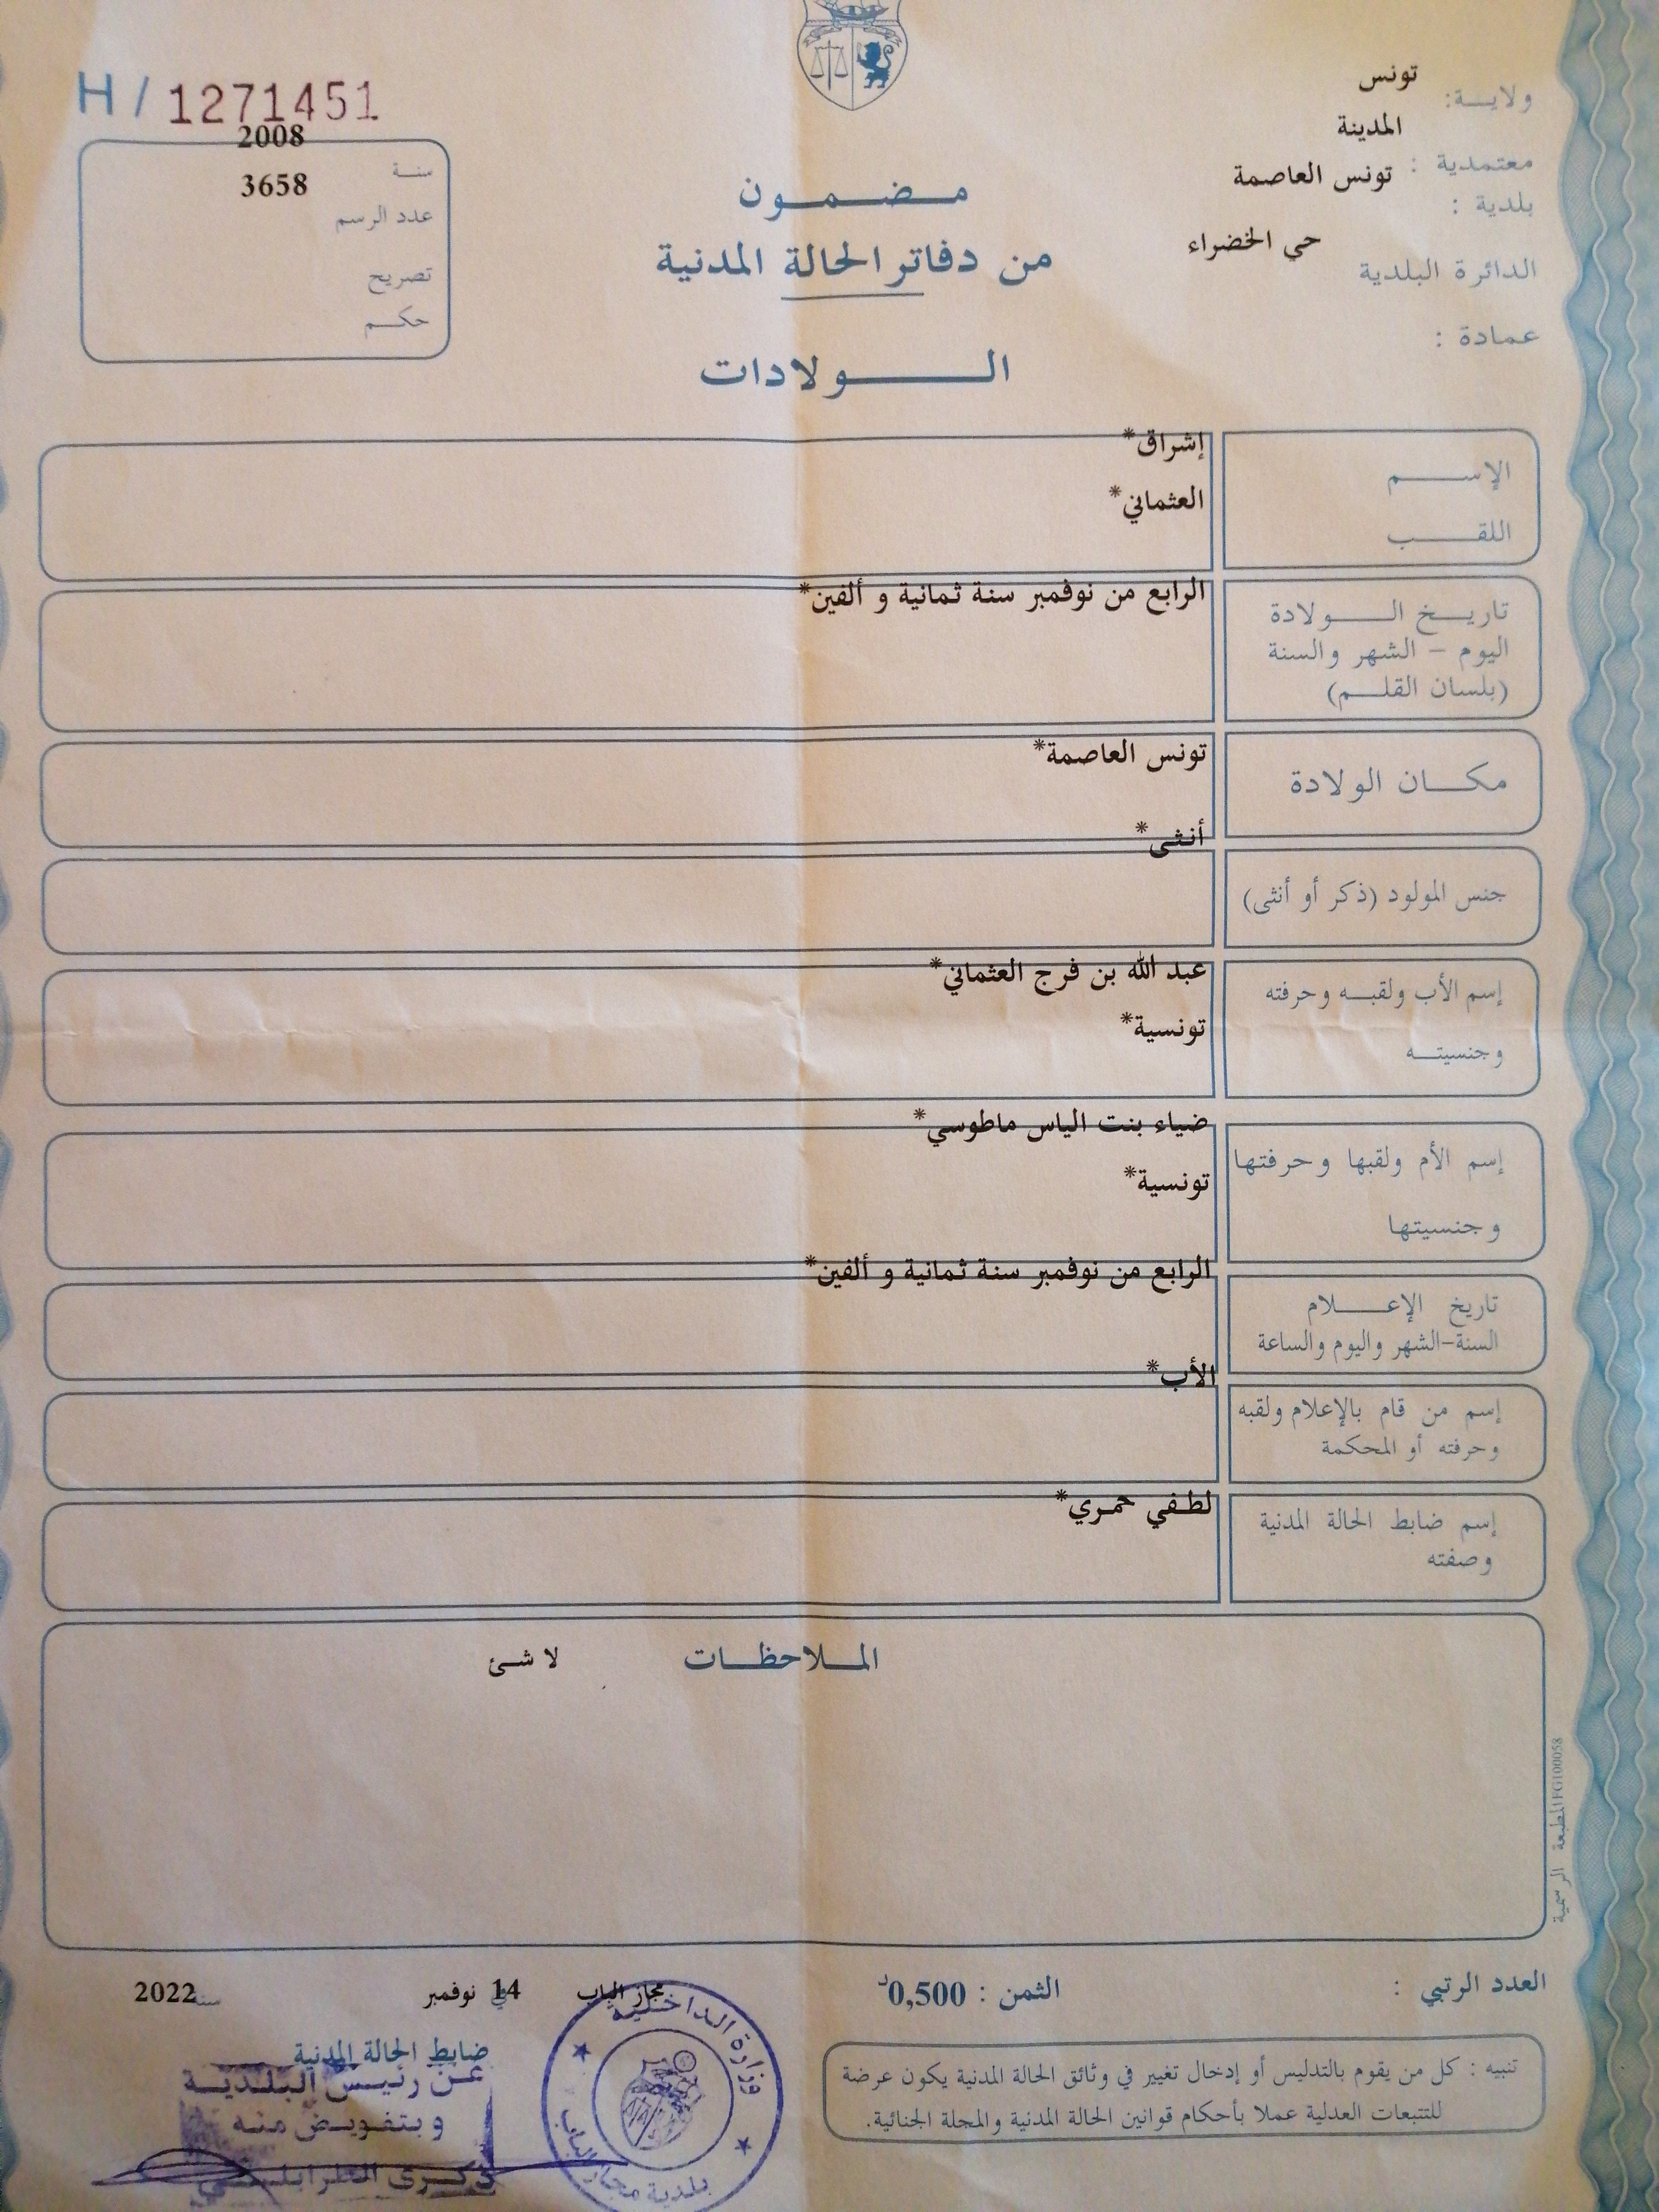 H / 1271451
ولايـــة: تونس
معتمدية : المدينة
بلدية : تونس العاصمة
الدائرة البلدية حي الخضراء
عمادة :
سنــة 2008
عدد الرسم 3658
تصريح
حكــم
مــضــمــون
من دفاتر الحالة المدنية
الــولادات
الإســـم إشراق*
اللقــب العثماني*
تاريــخ الــولادة الرابع من نوفمبر سنة ثمانية و ألفين*
اليوم – الشهر والسنة
(بلسان القلــم)
مكــان الولادة تونس العاصمة*
جنس المولود (ذكر أو أنثى) أنثى*
إسم الأب ولقبــه وحرفته عبد الله بن فرج العثماني*
وجنسيتــه تونسية*
إسم الأم ولقبها وحرفتها ضياء بنت الياس ماطوسي*
وجنسيتها تونسية*
تاريخ الإعــلام الرابع من نوفمبر سنة ثمانية و ألفين*
السنة–الشهر واليوم والساعة
إسم من قام بالإعلام ولقبه الأب*
وحرفته أو المحكمة
إسم ضابط الحالة المدنية لطفي حمري*
وصفته
المــلاحظــات لا شئ
المطبعة الرسمية IFG100058
العدد الرتبي :
الثمن : 0,500د
مجاز الباب في 14 نوفمبر سنة 2022
ضابط الحالة المدنية
عـن رئيـس البـلـديـة
وبتفويـض منـه
ذكـرى الطرابلـسي
وزارة الـداخـلـيـة
بلدية مجاز الباب
تنبيه : كل من يقوم بالتدليس أو إدخال تغيير في وثائق الحالة المدنية يكون عرضة
للتتبعات العدلية عملا بأحكام قوانين الحالة المدنية والمجلة الجنائية.